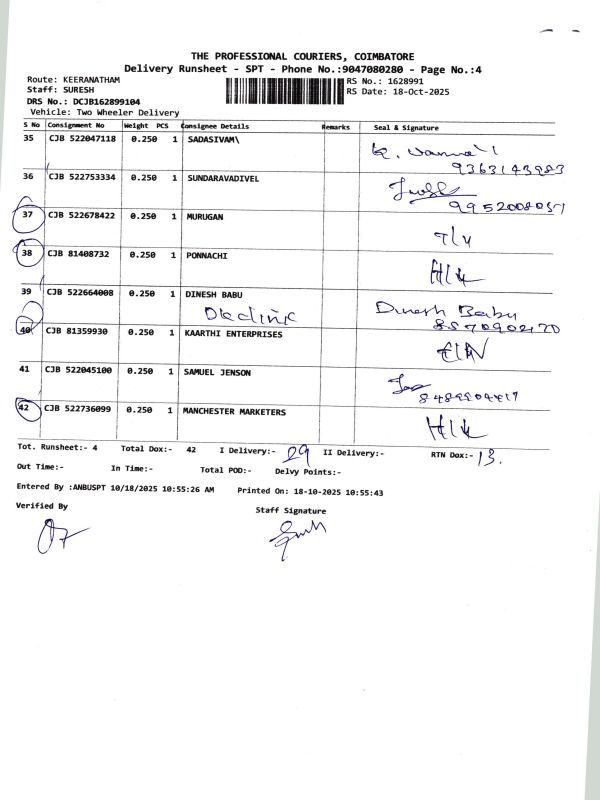 THE PROFESSIONAL COURIERS, COIMBATORE
Delivery Runsheet - SPT - Phone No.:9047080280 - Page No.:4
Route: KEERANATHAM RS No.: 1628991
Staff: SURESH RS Date: 18-Oct-2025
DRS No.: DCJB162899104
Vehicle: Two Wheeler Delivery
S No Consignment No Weight PCS Consignee Details Remarks Seal & Signature
35 CJB 522047118 0.250 1 SADASIVAM\
9363143983
36 CJB 522753334 0.250 1 SUNDARAVADIVEL
9952008057
37 CJB 522678422 0.250 1 MURUGAN
38 CJB 81408732 0.250 1 PONNACHI
H/L
39 CJB 522664008 0.250 1 DINESH BABU Dinesh Babu
40 CJB 81359930 0.250 1 KAARTHI ENTERPRISES
41 CJB 522045100 0.250 1 SAMUEL JENSON
42 CJB 522736099 0.250 1 MANCHESTER MARKETERS
H/L
Tot. Runsheet:- 4 Total Dox:- 42 I Delivery:- 29 II Delivery:- RTN Dox:- 13.
Out Time:- In Time:- Total POD:- Delvy Points:-
Entered By :ANBUSPT 10/18/2025 10:55:26 AM Printed On: 18-10-2025 10:55:43
Verified By Staff Signature